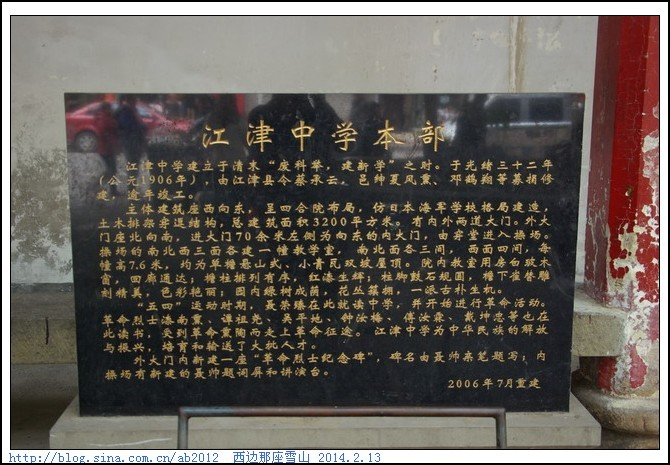 江津中学本部
江津中学建立于清末“废科举，建新学”之时。于光绪三十二年
（公元1906年），由江津县令蔡承云，邑绅夏风薰、邓鹤翔等募捐修
建，逾年竣工。
主体建筑座西向东，呈四合院布局，仿日本海军学校格局建造，
土木排架穿逗结构，总建筑面积3200平方米。有内外两道大门。外大
门座北向南，进大门70余米左侧为向东的内大门，由穿堂进入操场。
操场的南北西三面各建一幢教学室，南北面各三间，西面四间，每
幢高7.6米，均为单檐悬山式，小青瓦双坡屋顶。院内教室用房白玻木
窗，回廊通达；檐柱排列有序，红漆生辉；柱脚鼓石规圆，檐下雀替雕
刻精美，色彩艳丽；园内绿树成荫，花丛簇拥，一派古朴生机。
“五四”运动时期，聂荣臻在此就读中学，并开始进行革命活动。
革命烈士漆南薰、谭祖尧、吴平地、钟汝梅、傅汝霖、戴坤忠等也在
此读书，受到革命熏陶而走上革命征途。江津中学为中华民族的解放
与振兴，培育和输送了大批人才。
外大门内新建一座“革命烈士纪念碑”，碑名由聂帅亲笔题写；内
操场有新建的聂帅题词屏和讲演台。
2006年7月重建
http://blog.sina.com.cn/ab2012 西边那座雪山 2014.2.13